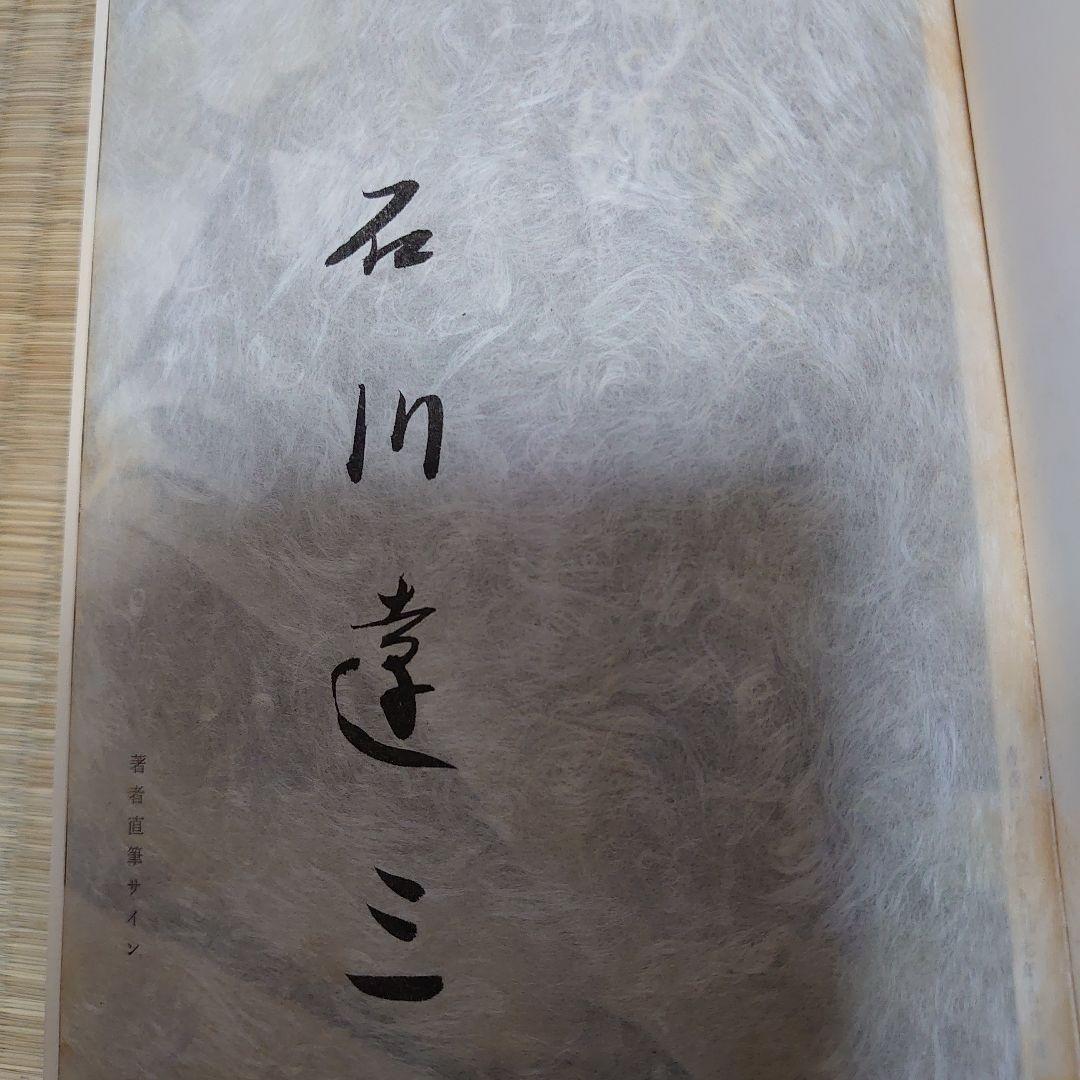 石川達三
著者直筆サイン